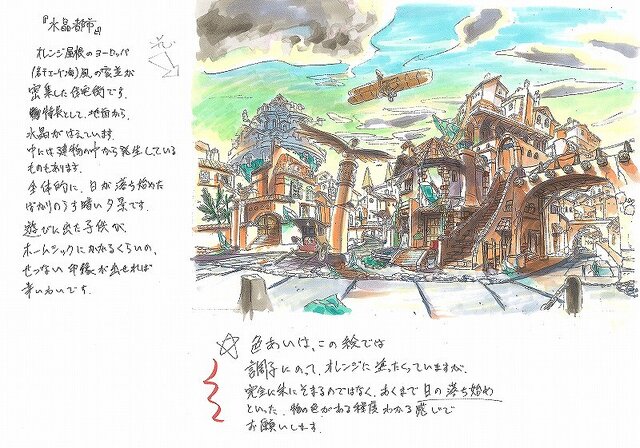 『水晶都市』
オレンジ屋根のヨーロッパ
風の家並が
密集した住宅街です。
特長として、地面から、
水晶がはえています。
中には建物の中から発生している
ものもあります。
全体的に、日が落ち始めた
ばかりのうす暗い夕景です。
遊びに出た子供が、
ホームシックにかかるくらいの、
せつない印象が出せれば
幸いです。
色あいは、この絵では
調子にのって、オレンジに塗ったくっていますが、
完全に朱にそまるのではなく、あくまで日の落ち始め
といった、物の色がある程度わかる感じで
お願いします。